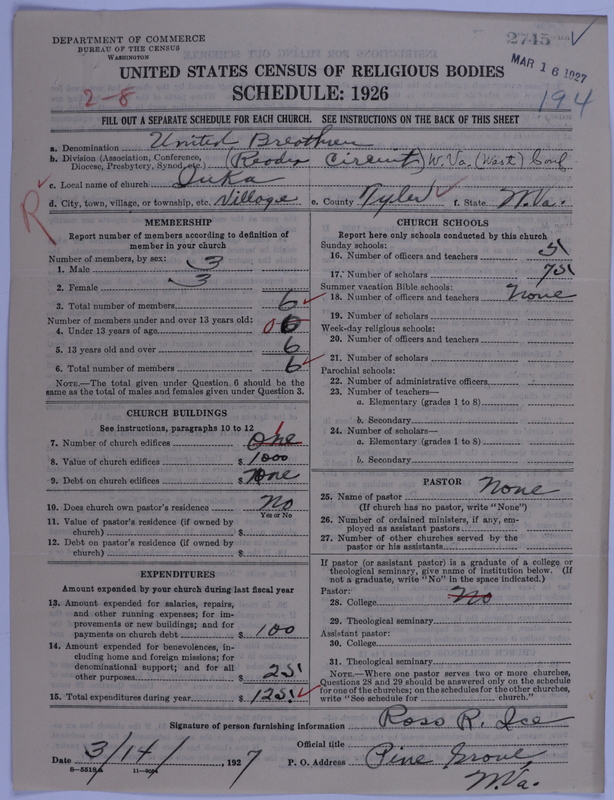 DEPARTMENT OF COMMERCE
BUREAU OF THE CENSUS
WASHINGTON
2745
MAR 16 1927
194
UNITED STATES CENSUS OF RELIGIOUS BODIES
SCHEDULE: 1926
2-8
FILL OUT A SEPARATE SCHEDULE FOR EACH CHURCH. SEE INSTRUCTIONS ON THE BACK OF THIS SHEET
a. Denomination United Breathren
b. Division (Association, Conference, Diocese, Presbytery, Synod, etc.) (Reader Circuit) W. Va. (West) Conf
c. Local name of church Iuka
d. City, town, village, or township, etc. Village e. County Tyler f. State W. Va.
R
MEMBERSHIP
Report number of members according to definition of
member in your church
Number of members, by sex:
1. Male 3
2. Female 3
3. Total number of members 6
Number of members under and over 13 years old:
4. Under 13 years of age 0 6
5. 13 years old and over 6
6. Total number of members 6
NOTE.—The total given under Question 6 should be the
same as the total of males and females given under Question 3.
CHURCH BUILDINGS
See instructions, paragraphs 10 to 12
7. Number of church edifices One 1
8. Value of church edifices $ 1000
9. Debt on church edifices $ None
10. Does church own pastor's residence No
Yes or No
11. Value of pastor's residence (if owned by
church) $
12. Debt on pastor's residence (if owned by
church) $
EXPENDITURES
Amount expended by your church during last fiscal year
13. Amount expended for salaries, repairs,
and other running expenses; for im-
provements or new buildings; and for
payments on church debt $ 100
14. Amount expended for benevolences, in-
cluding home and foreign missions; for
denominational support; and for all
other purposes $ 25
15. Total expenditures during year $ 125
CHURCH SCHOOLS
Report here only schools conducted by this church
Sunday schools:
16. Number of officers and teachers 5
17. Number of scholars 75
Summer vacation Bible schools:
18. Number of officers and teachers None
19. Number of scholars
Week-day religious schools:
20. Number of officers and teachers
21. Number of scholars
Parochial schools:
22. Number of administrative officers
23. Number of teachers—
a. Elementary (grades 1 to 8)
b. Secondary
24. Number of scholars—
a. Elementary (grades 1 to 8)
b. Secondary
PASTOR
25. Name of pastor None
(If church has no pastor, write "None")
26. Number of ordained ministers, if any, em-
ployed as assistant pastors
27. Number of other churches served by the
pastor or his assistants
If pastor (or assistant pastor) is a graduate of a college or
theological seminary, give name of institution below. (If
not a graduate, write "No" in the space indicated.)
Pastor:
28. College No
29. Theological seminary
Assistant pastor:
30. College
31. Theological seminary
NOTE.—Where one pastor serves two or more churches,
Questions 28 and 29 should be answered only on the schedule
for one of the churches; on the schedules for the other churches,
write "See schedule for church."
Signature of person furnishing information Ross R. Ice
Official title
Date 3/14/, 1927 P. O. Address Pine Grove
W. Va.
8—5518a 11—9004